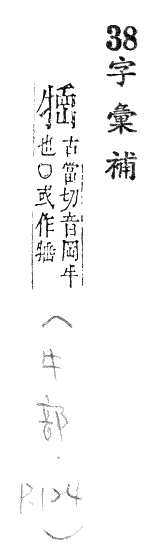 38字彙補
古當切音岡牛
也○或作
(牛部.P.124)